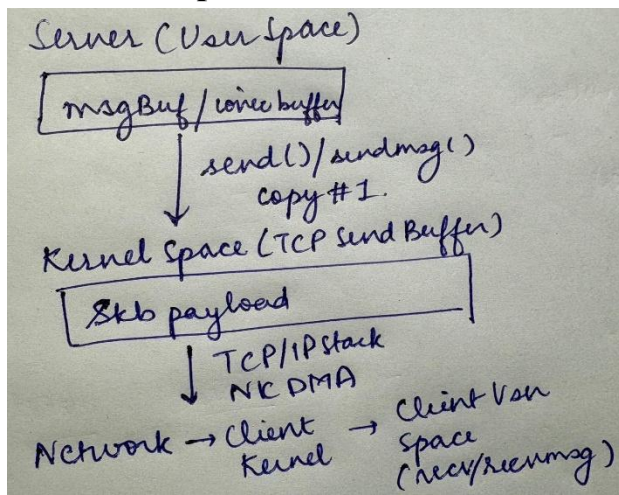 Server (User Space)
msgBuf / iovec buffer
send()/sendmsg()
copy #1.
Kernel Space (TCP Send Buffer)
Skb payload
TCP/IP Stack
NIC DMA
Network → Client Kernel → Client User Space (recv/recvmsg)